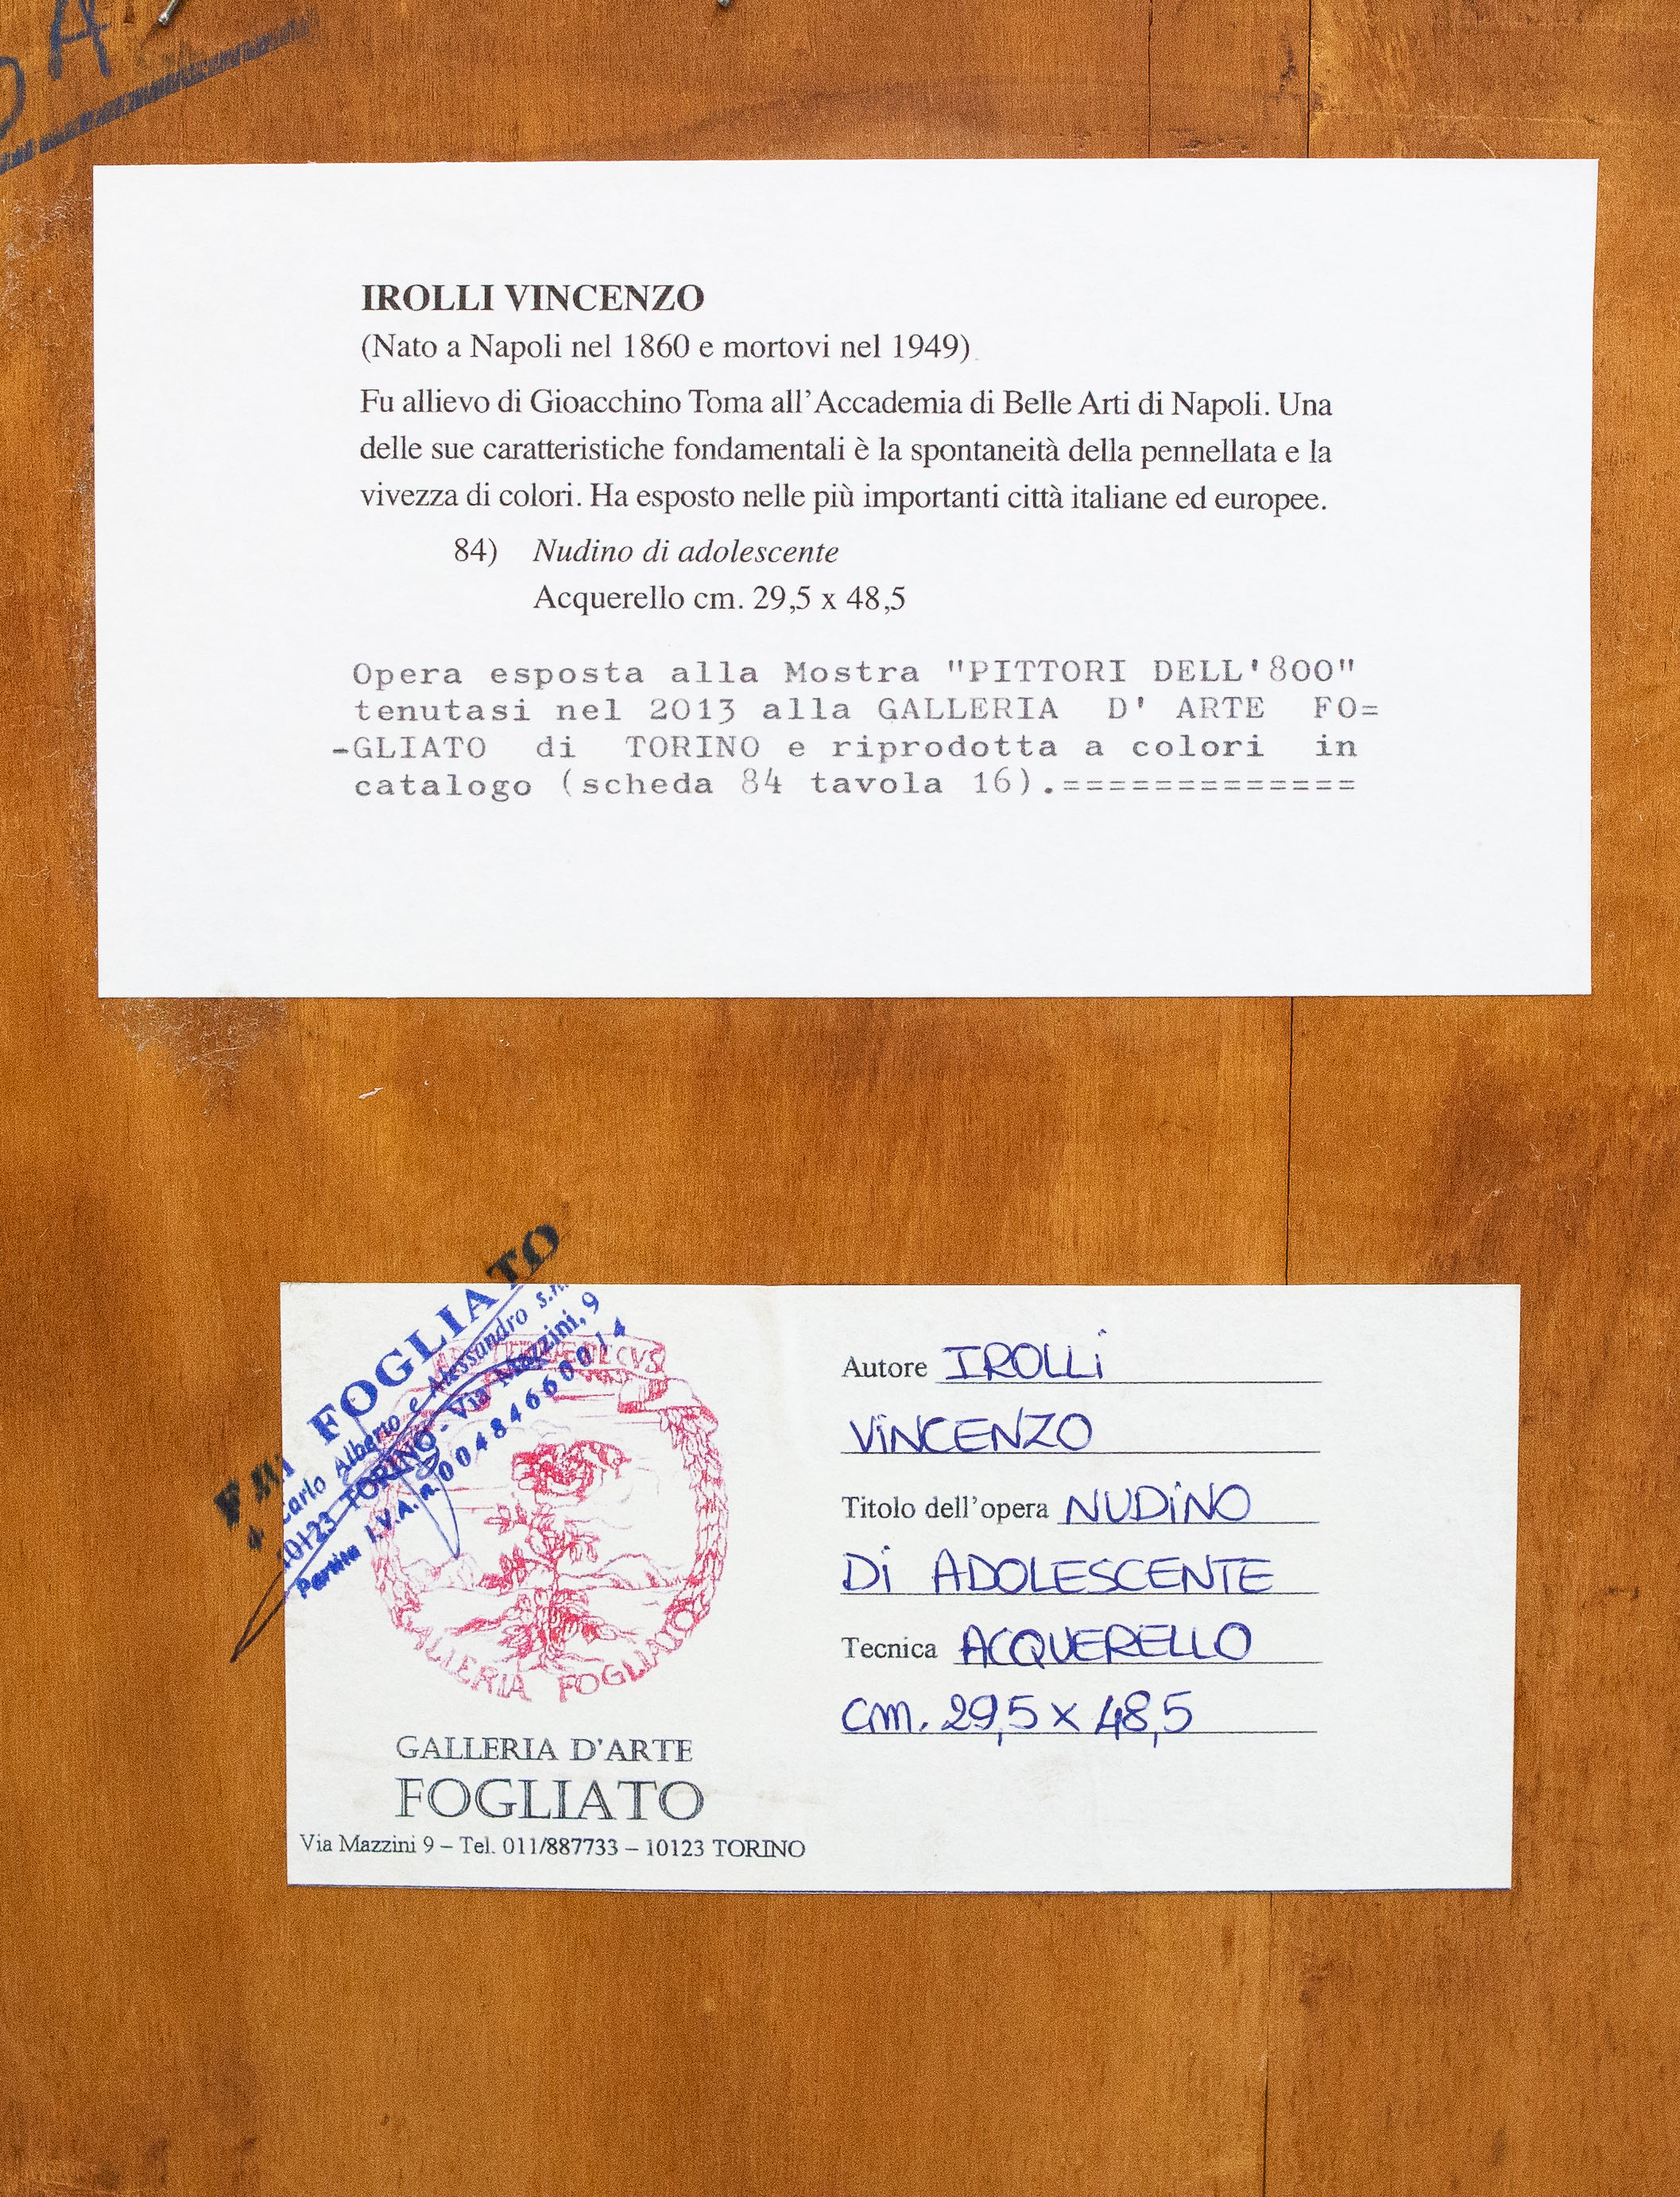 IROLLI VINCENZO
(Nato a Napoli nel 1860 e mortovi nel 1949)
Fu allievo di Gioacchino Toma all'Accademia di Belle Arti di Napoli. Una
delle sue caratteristiche fondamentali è la spontaneità della pennellata e la
vivezza di colori. Ha esposto nelle più importanti città italiane ed europee.
84) Nudino di adolescente
Acquerello cm. 29,5 x 48,5
Opera esposta alla Mostra "PITTORI DELL'800"
tenutasi nel 2013 alla GALLERIA D' ARTE FO=
-GLIATO di TORINO e riprodotta a colori in
catalogo (scheda 84 tavola 16).=============
FOGLIATO
Carlo Alberto e Alessandro s.n.
10123 TORINO - Via Mazzini, 9
Partita I.V.A. n. 00484660014
GALLERIA FOGLIATO
GALLERIA D'ARTE
FOGLIATO
Via Mazzini 9 – Tel. 011/887733 – 10123 TORINO
Autore IROLLi
ViNCENZO
Titolo dell'opera NUDiNO
Di ADOLESCENTE
Tecnica ACQUERELLO
cm. 29,5 x 48,5